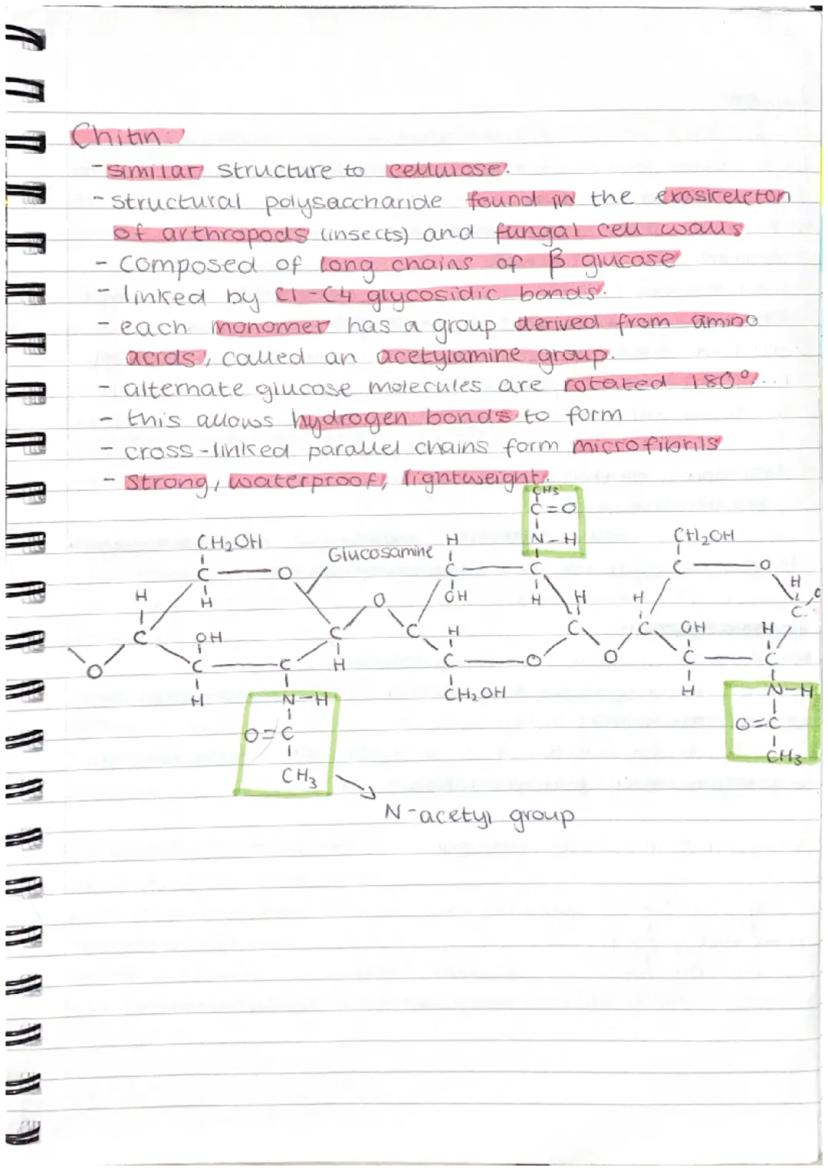 Chitin
- similar structure to cellulose.
- structural polysaccharide found in the exoskeleton
of arthropods (insects) and fungal cell walls
- composed of long chains of β glucose
- linked by C1-C4 glycosidic bonds.
- each monomer has a group derived from amino
acids, called an acetylamine group.
- alternate glucose molecules are rotated 180°.
- this allows hydrogen bonds to form
- cross-linked parallel chains form microfibrils
- strong, waterproof, lightweight.
CH3
C=O
N-H
CH2OH
Glucosamine
H
CH2OH
C
O
C
C
C
O
H
H
OH
H
H
H
H
O
C
OH
C
H
C
C
OH
H
C
O
C
C
H
C
O
O
C
C
H
H
CH2OH
H
N-H
N-H
O=C
O=C
CH3
CH3
N-acetyl group